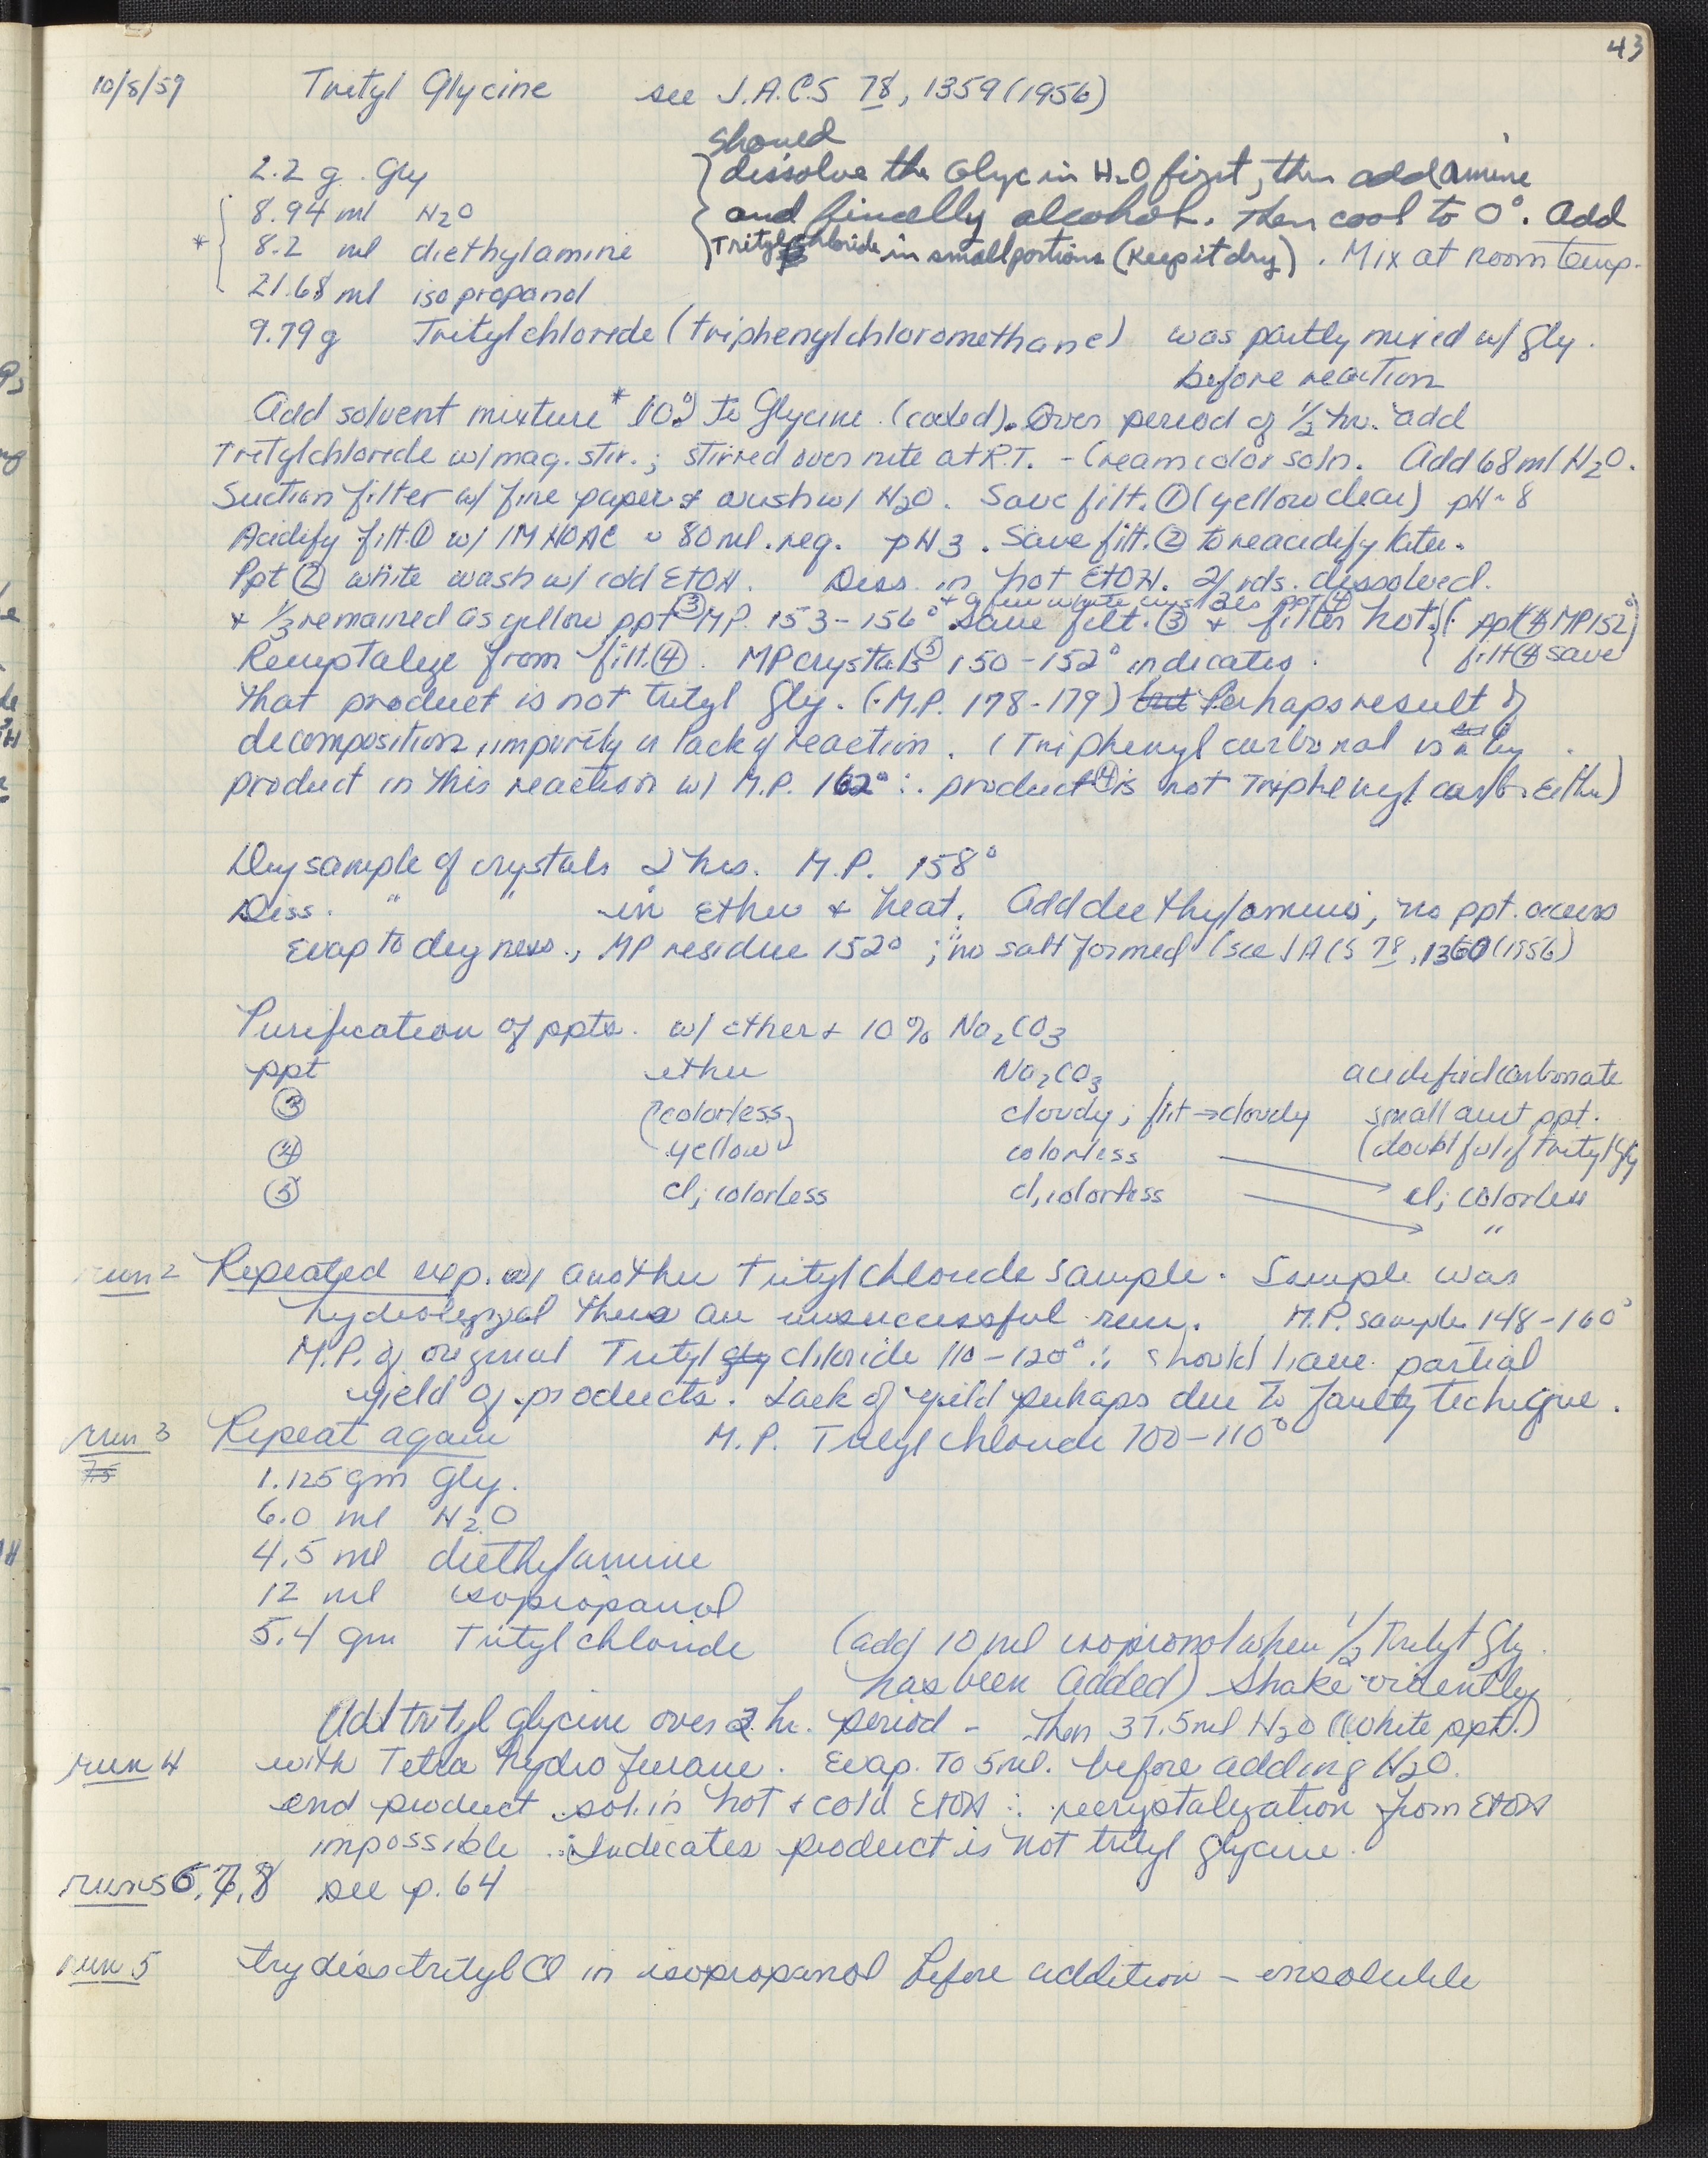 43
10/8/59 Trityl Glycine see J.A.C.S 78, 1359 (1956)
should
2.2 g. Gly } dissolve the Glyc in H2O first, then add amine
8.94 ml H2O { and finally alcohol. Then cool to 0°. Add
* { 8.2 ml diethylamine } Tritylchloride in small portions (keep it dry). Mix at room temp.
21.68 ml isopropanol
9.79 g Tritylchloride (triphenylchloromethane) was partly mixed w/ gly.
before reaction
Add solvent mixture* (0°) to Glycine (cooled). Over period of ½ hr. add
Tritylchloride w/ mag. stir.; stirred over nite at R.T. - Cream color soln. Add 68 ml H2O.
Suction filter w/ fine paper & wash w/ H2O. Save filt. ① (yellow clear) pH ~ 8
Acidify filt. ① w/ 1M HOAC ~ 80 ml. req. pH 3. Save filt. ② to reacidify later.
Ppt ② white wash w/ cold EtOH. Diss. in hot EtOH. 2/3 rds. dissolved.
+ a few white crystals ppt ④
& 1/3 remained as yellow ppt ③ MP. 153-156° save filt. ③ & filter hot. {(ppt ④ MP 152°)
Recrystalize from filt. ④. MP crystals ⑤ 150-152° indicates { filt ④ save
that product is not trityl gly. (M.P. 178-179) but Perhaps result of
decomposition, impurity or lack of reaction. (Triphenyl carbinol is a by
product in this reaction w/ M.P. 162° ∴ product ④ is not Triphenyl carb. either)
Dry sample of crystals 2 hrs. M.P. 158°
Diss. " " in ether & heat. Add diethylamine, no ppt. occurs
Evap to dryness., MP residue 152°; "no salt formed (see JACS 78, 1360 (1956)
Purification of ppts. w/ ether & 10% Na2CO3
ppt ether Na2CO3 acidified carbonate
③ (colorless) cloudy; filt → cloudy small amt ppt.
④ yellow colorless (doubtful if trityl gly
⑤ cl; colorless cl, colorless → cl; colorless
→ "
run 2 Repeated exp. w/ another Tritylchloride sample. Sample was
hydrolyzed thus an unsuccessful run. M.P. sample 148-160°
M.P. of original Trityl gly chloride 110-120° ∴ should have partial
yield of products. Lack of yield perhaps due to faulty technique.
run 3 Repeat again M.P. Trityl chloride 100-110°
7.5
1.125 gm Gly.
6.0 ml H2O
4.5 ml diethylamine
12 ml isopropanol
5.4 gm Trityl chloride (add 10 ml isopropnol when ½ Trityl Gly
has been added) Shake violently
Add trityl glycine over 2 hr. period - then 37.5 ml H2O (white ppt.)
run 4 with Tetra hydro furane. Evap. To 5 ml. before adding H2O.
end product sol. in hot & cold EtOH ∴ recrystalyzation from EtOH
impossible ∴ Indicates product is not trityl glycine.
runs 6, 7, 8 see p. 64
run 5 try diss trityl Cl in isopropanol before addition - insoluble